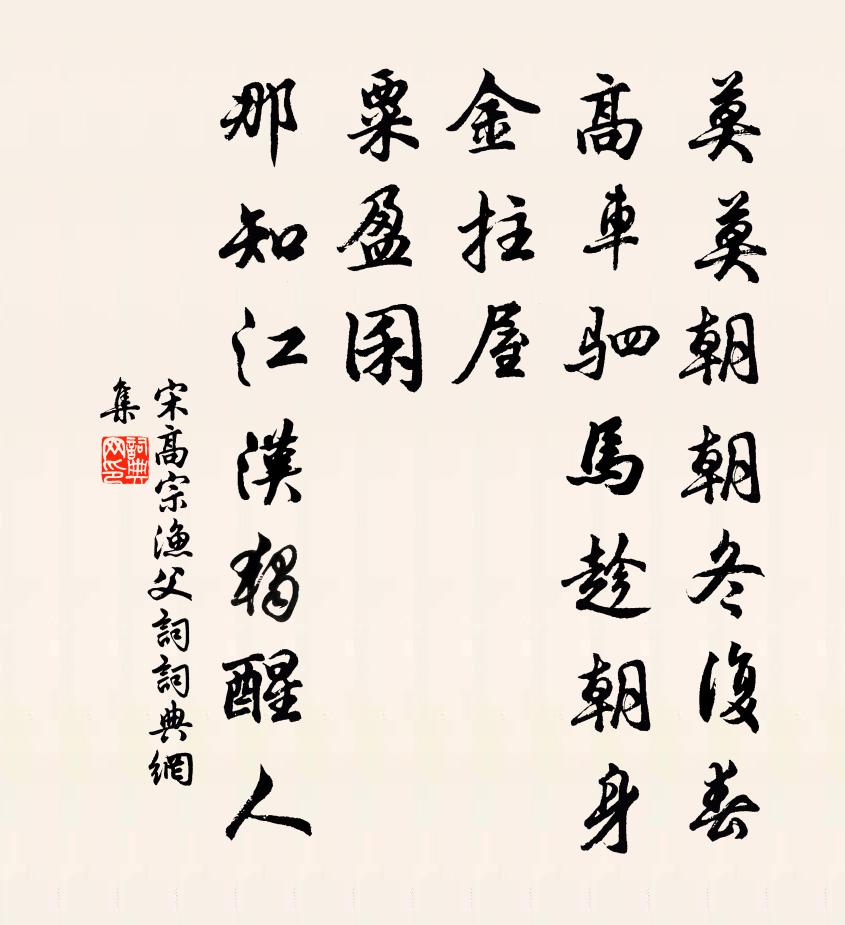 莫莫朝朝冬復春
高車駟馬趁朝身
金拄屋
粟盈囷
那知江漢獨醒人
宋高宗漁父詞詞典網
集
詞典网印